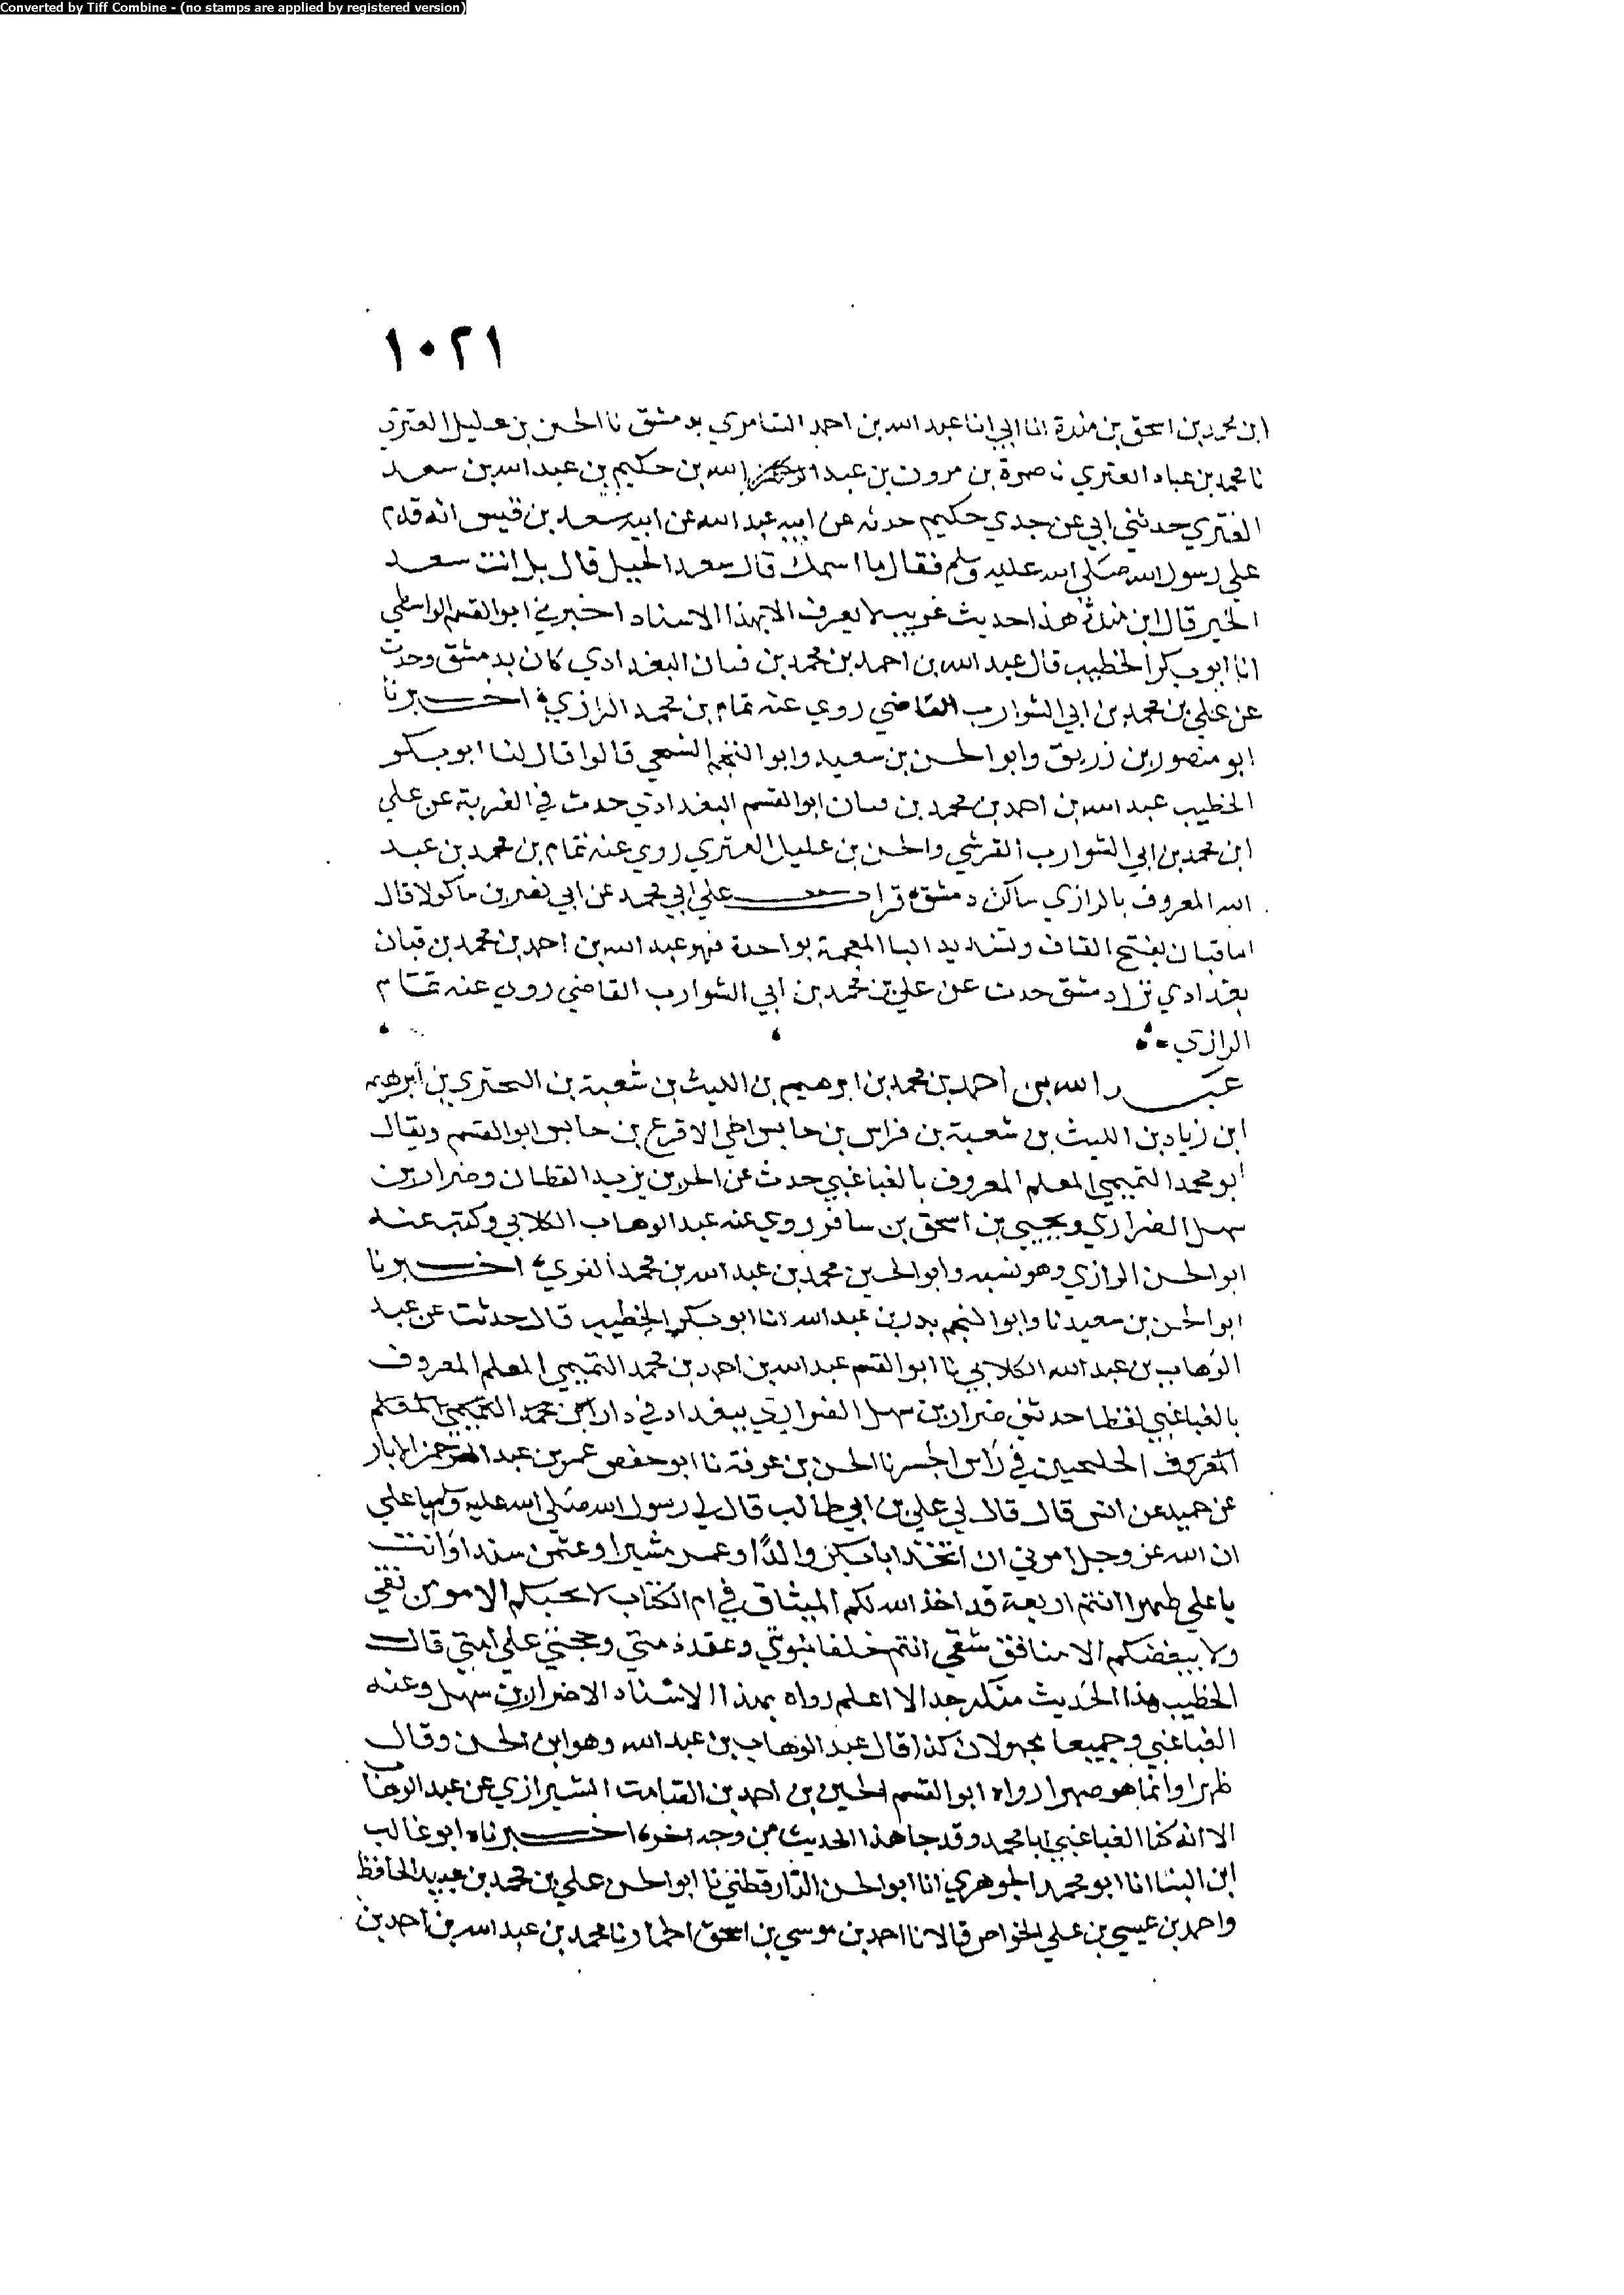 Converted by Tiff Combine - (no stamps are applied by registered version)
١٠٢١
ابن محمد بن اسحق بن مندة انا ابي انا عبد الله بن احمد الشامري بدمشق نا الحسن بن عليل العتري
نا محمد بن عباد العتري نا صرة بن مرون بن عبد الله بن حكيم بن عبد الله بن سعد
العتري حدثني ابي عن جدي حكيم حدثه عن ابيه عبد الله عن ابيه سعد بن قيس انه قدم
علي رسول الله صلى الله عليه وسلم فقال ما اسمك قال سعد الخيل قال بل انت سعد
الخير قال ابن مندة هذا حديث غريب لا يعرف الا بهذا الاسناد اخبرني ابو القسم الواسطي
انا ابو بكر الخطيب قال عبد الله بن احمد بن محمد بن قبان البغدادي كان بدمشق وحدث
عن علي بن محمد بن ابي الشوارب القاضي روي عنه تمام بن محمد الرازي اخبرنا
ابو منصور بن زريق وابو الحسن بن سعيد وابو النجم الشيحي قالوا قال لنا ابو بكر
الخطيب عبد الله بن احمد بن محمد بن قبان ابو القسم البغدادي حدث في الغربة عن علي
ابن محمد بن ابي الشوارب القرشي والحسن بن عليل العتري روي عنه تمام بن محمد بن عبد
الله المعروف بالرازي ساكن دمشق قرات علي ابي محمد عن ابي نصر بن ماكولا قال
اما قبان بفتح القاف وتشديد البا المعجمة بواحدة فهو عبد الله بن احمد بن محمد بن قبان
بغدادي نزل دمشق حدث عن علي بن محمد بن ابي الشوارب القاضي روي عنه تمام
الرازي
عبد الله بن احمد بن محمد بن ابرهيم بن الليث بن شعبة بن البحتري بن ابرهيم
ابن زياد بن الليث بن شعبة بن فراس بن حابس اخي الاقرع بن حابس ابو القسم ويقال
ابو محمد التميمي المعلم المعروف بالغباغبي حدث عن الحسن بن يزيد القطان وضرار بن
سهل الضراري ويحيي بن اسحق بن سافر روي عنه عبد الوهاب الكلابي وكتب عنه
ابو الحسن الرازي وهو نسبه وابو الحسين محمد بن عبد الله بن محمد الفوي اخبرنا
ابو الحسن بن سعيد نا وابو النجم بدر بن عبد الله انا ابو بكر الخطيب قال حدثت عن عبد
الوهاب بن عبد الله الكلابي نا ابو القسم عبد الله بن احمد بن محمد التميمي المعلم المعروف
بالغباغبي لفظا حدثني ضرار بن سهل الضراري ببغداد في دار ابن محمد التميمي المعلم
المعروف الخلعيين في راس الجسر نا الحسن بن عرفة نا ابو حفص عمر بن عبد الرحمن الابار
عن حميد عن انس قال قال لي علي بن ابي طالب قال لي رسول الله صلى الله عليه وسلم يا علي
ان الله عز وجل امرني ان اتخذ ابا بكر والدا وعمر مشيرا وعثمن سندا وانت
يا علي ظهرا انتم اربعة قد اخذ الله لكم الميثاق في ام الكتاب لا يحبكم الا مومن تقي
ولا يبغضكم الا منافق شقي انتم خلفا نبوتي وعقد ذمتي وحجتي علي امتي قال
الخطيب هذا الحديث منكر جدا لا اعلم رواه بهذا الاسناد الا ضرار بن سهل وعنه
الغباغبي وجميعا مجهولان كذا قال عبد الوهاب بن عبد الله وهو ابن الحسن وقال
ظهرا وانما هو صهرا رواه ابو القسم الحسين بن احمد بن الشيرازي عن عبد الوهاب
الا انه كنا الغباغبي ابا محمد وقد جا هذا الحديث من وجه اخر اخبرناه ابو غالب
ابن البنا انا ابو محمد الجوهري انا ابو الحسن الدارقطني نا ابو الحسن علي بن محمد بن عبيد الحافظ
واحمد بن عيسي بن علي الخواص قالا نا احمد بن موسي بن اسحق الحمار نا محمد بن عبد الله بن احمد بن